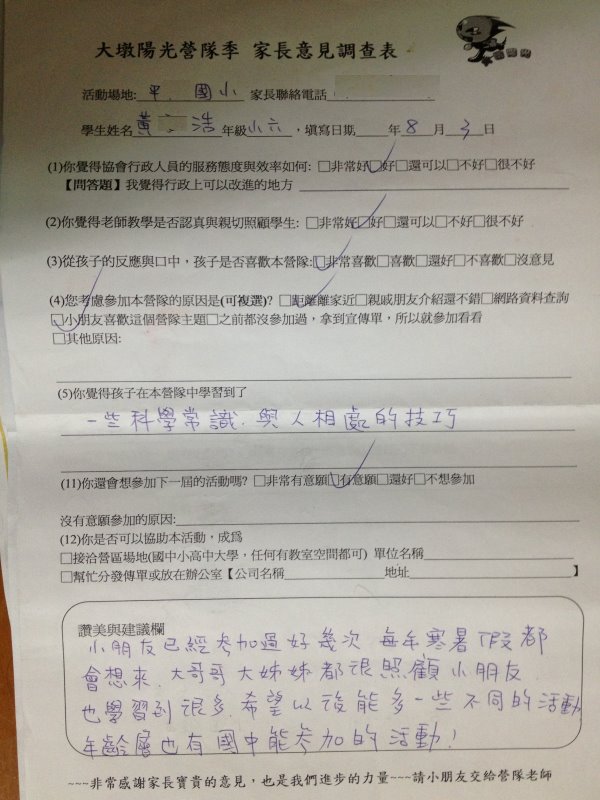 大墩陽光營隊季 家長意見調查表
活動場地: 平 國小 家長聯絡電話
學生姓名 黃 浩 年級 小六，填寫日期 年 8 月 3 日
(1)你覺得協會行政人員的服務態度與效率如何: □非常好□好□還可以□不好□很不好
【問答題】我覺得行政上可以改進的地方
(2)你覺得老師教學是否認真與親切照顧學生: □非常好□好□還可以□不好□很不好
(3)從孩子的反應與口中，孩子是否喜歡本營隊:□非常喜歡□喜歡□還好□不喜歡□沒意見
(4)您考慮參加本營隊的原因是(可複選)? □距離離家近□親戚朋友介紹還不錯□網路資料查詢
□小朋友喜歡這個營隊主題□之前都沒參加過，拿到宣傳單，所以就參加看看
□其他原因:
(5)你覺得孩子在本營隊中學習到了
一些科學常識.與人相處的技巧
(11)你還會想參加下一屆的活動嗎? □非常有意願□有意願□還好□不想參加
沒有意願參加的原因:
(12)你是否可以協助本活動，成為
□接洽營區場地(國中小高中大學，任何有教室空間都可) 單位名稱
□幫忙分發傳單或放在辦公室【公司名稱 地址 】
讚美與建議欄
小朋友已經參加過好幾次 每年寒暑假都
會想來.大哥哥大姊姊都很照顧小朋友
也學習到很多.希望以後能多一些不同的活動
年齡層也有國中能參加的活動!
~~~非常感謝家長寶貴的意見，也是我們進步的力量~~~請小朋友交給營隊老師